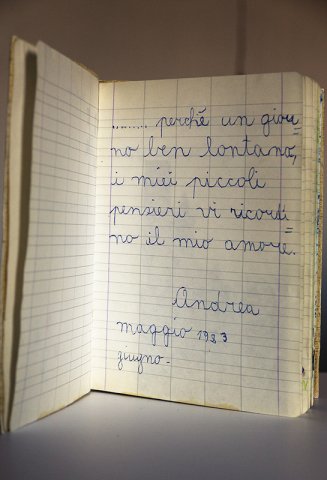 ......... perché un gior=
no ben lontano,
i miei piccoli
pensieri vi ricordi=
no il mio amore.
Andrea
maggio 1983
giugno.